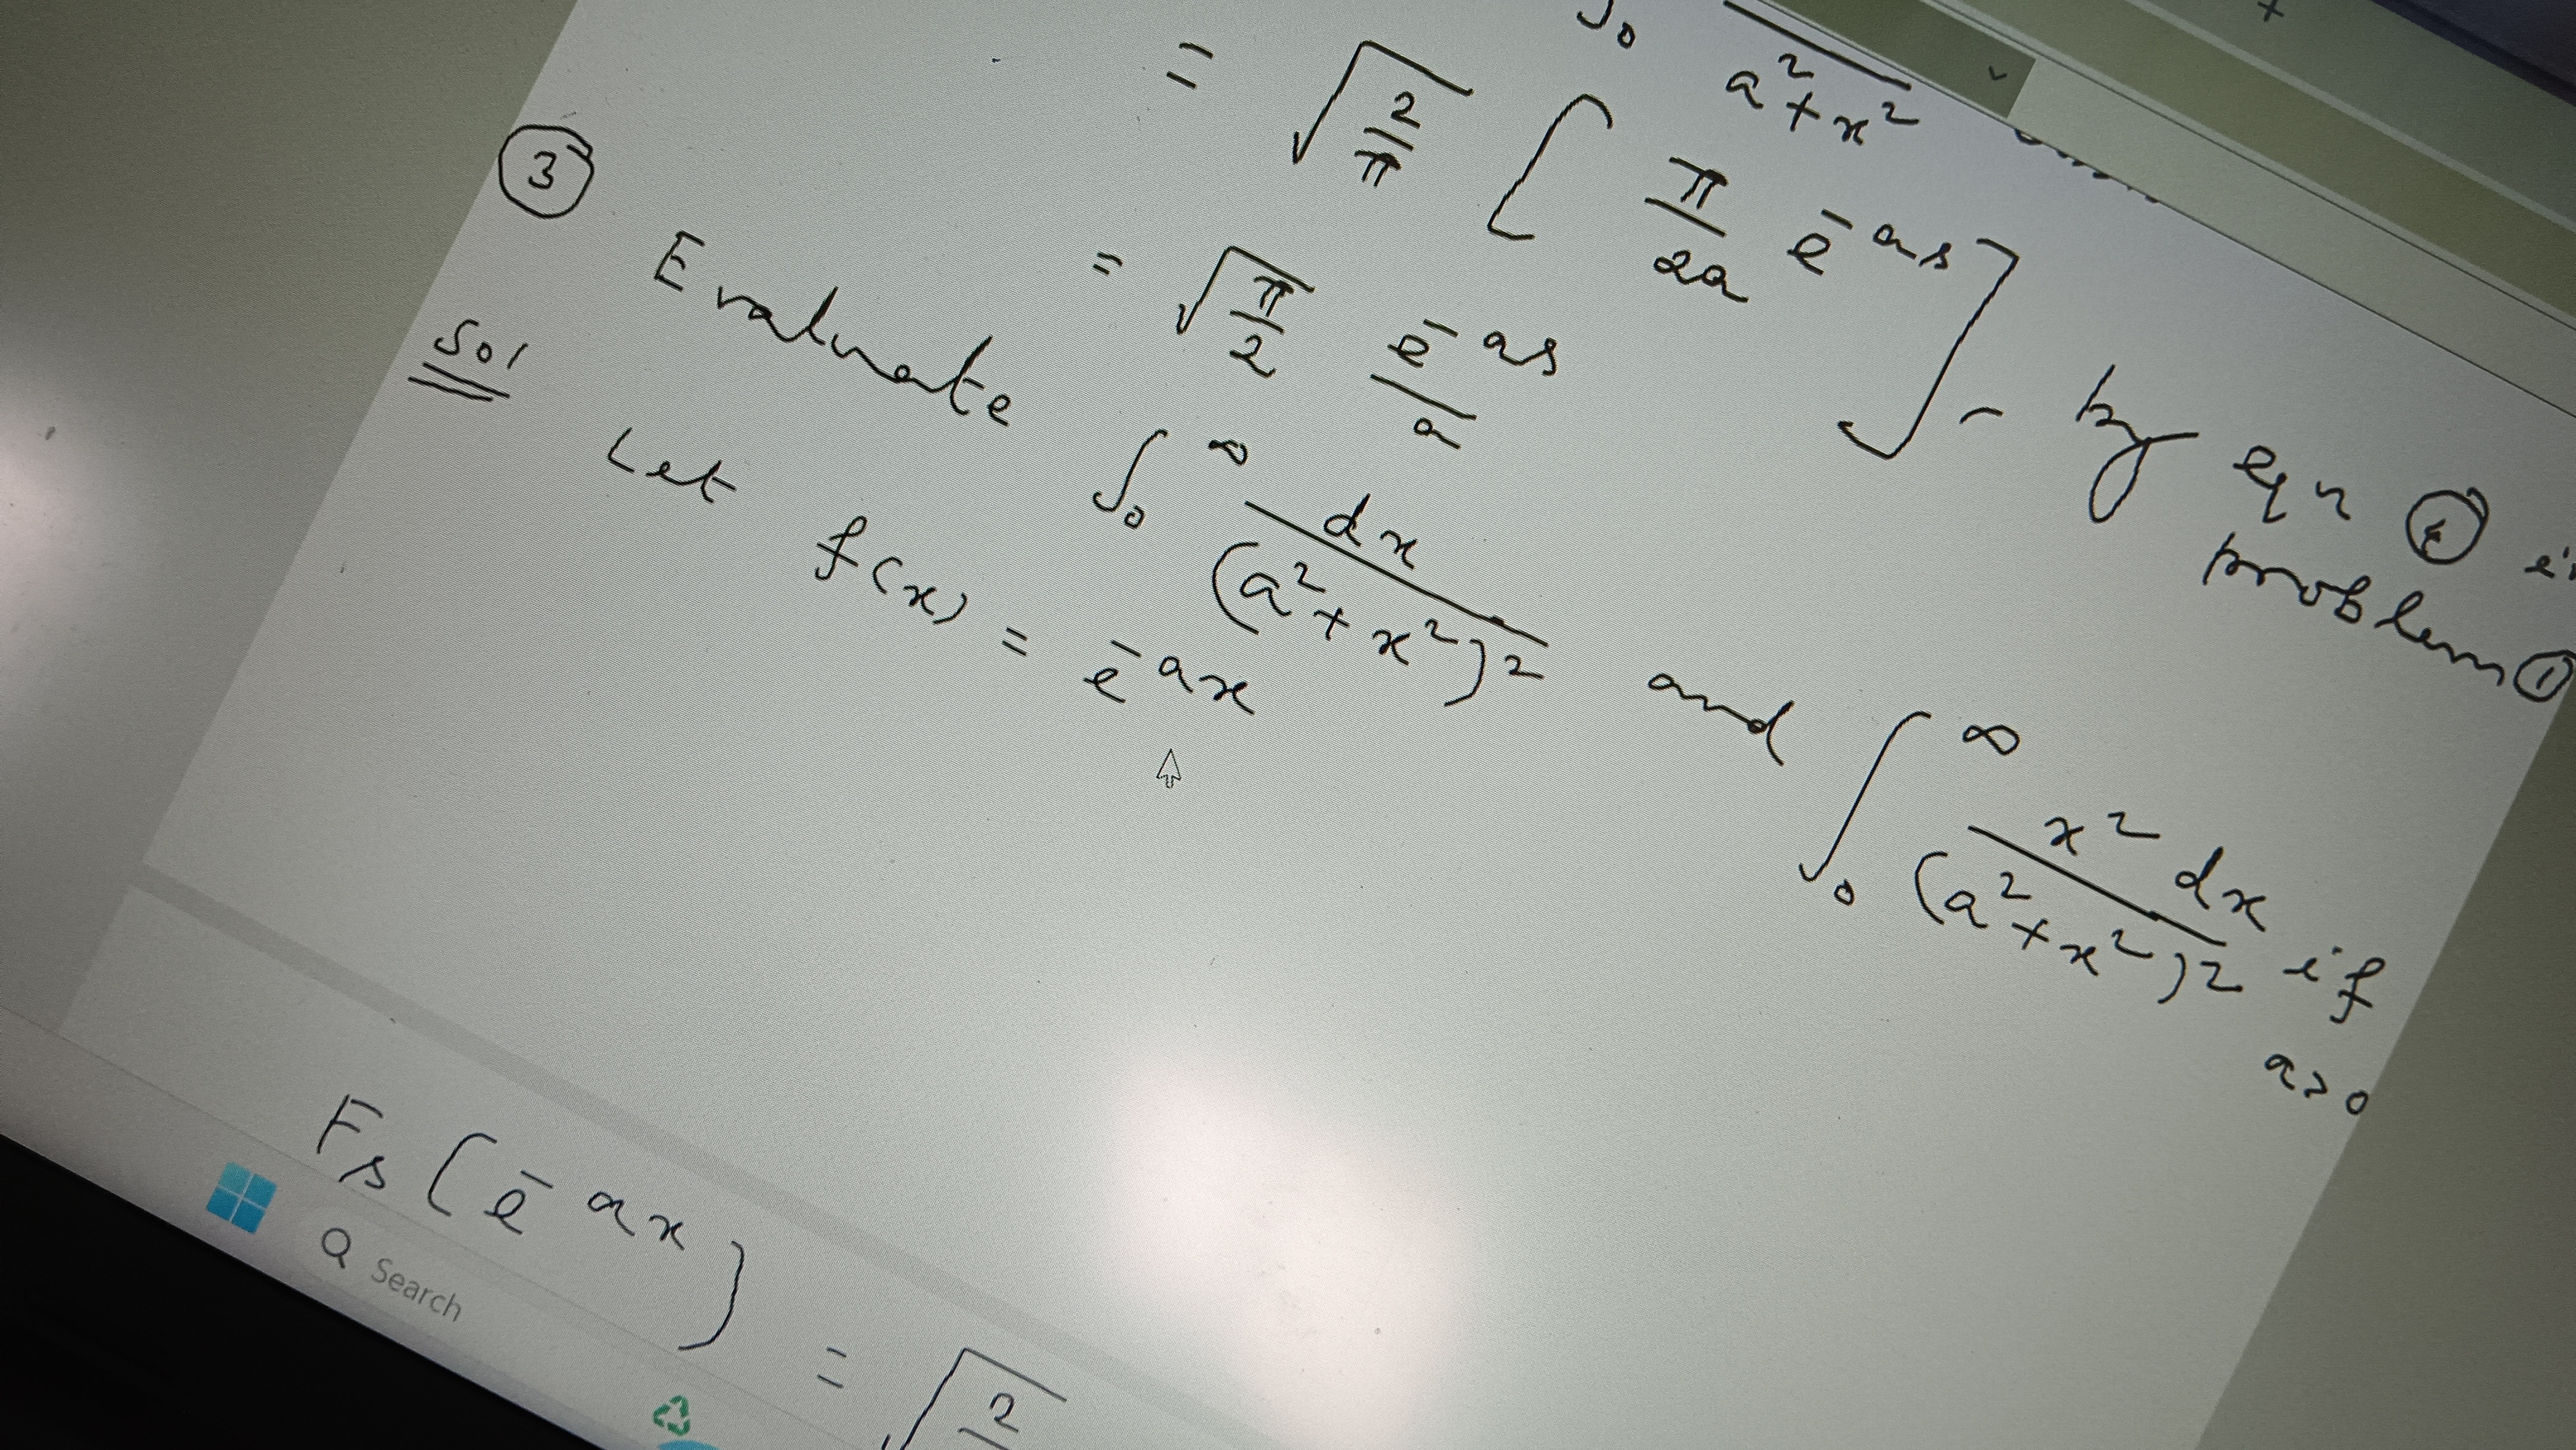 ∫₀ a²+x²
= √(2/π) [ π/2a e^-as ] - by eqn
problem ①
= √(π/2) e^-as/a
③ Evaluate ∫₀^∞ dx/(a²+x²)² and ∫₀^∞ x² dx/(a²+x²)² if
a>0
Sol Let f(x) = e^-ax
Fs(e^-ax) = √2
Search